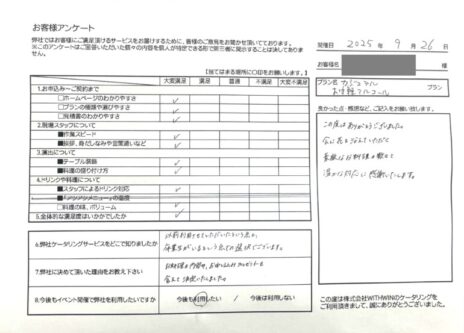 お客様アンケート
弊社ではお客様にご満足頂けるサービスをお届けするために、皆様のご意見をお聞かせ頂いております。
※このアンケートはご記入いただいた個々の内容を個人が特定できる形で第三者に開示することは決してありません。
【当てはまる箇所に〇印をお願いします。】
大変満足 満足 普通 不満足 大変不満足
1.お申込み～ご契約まで
□ホームページのわかりやすさ ✓
□プランの種類や選びやすさ ✓
□見積書のわかりやすさ ✓
2.現場スタッフについて
■作業スピード ✓
■挨拶、身だしなみや言葉遣いなど ✓
3.演出について
■テーブル装飾 ✓
■料理の盛り付け方 ✓
4.ドリンクや料理について
■スタッフによるドリンク対応 ✓
□料理の味、ボリューム ✓
5.全体的な満足度はいかがでしたか ✓
6.弊社ケータリングサービスをどこで知りましたか
以前利用させていただいたという点と、
卒業生がいるという点での選択でございます。
7.弊社に決めて頂いた理由をお教え下さい
お料理の内容や、お申し込み
含めて決定いたしました。
8.今後もイベント開催で弊社を利用したいですか
今後も利用したい / 今後は利用しない
開催日 2025年 9月 26日
お客様名 様
プラン名 カジュアル
お手軽アルコール プラン
良かった点・感想など、ご記入をお願い致します。
この度はありがとうございました。
会に花を添えていただく
素敵なお料理の数々で
感謝いたします。
この度は株式会社WITHWINのケータリングを
ご利用頂きまして、誠にありがとうございました。